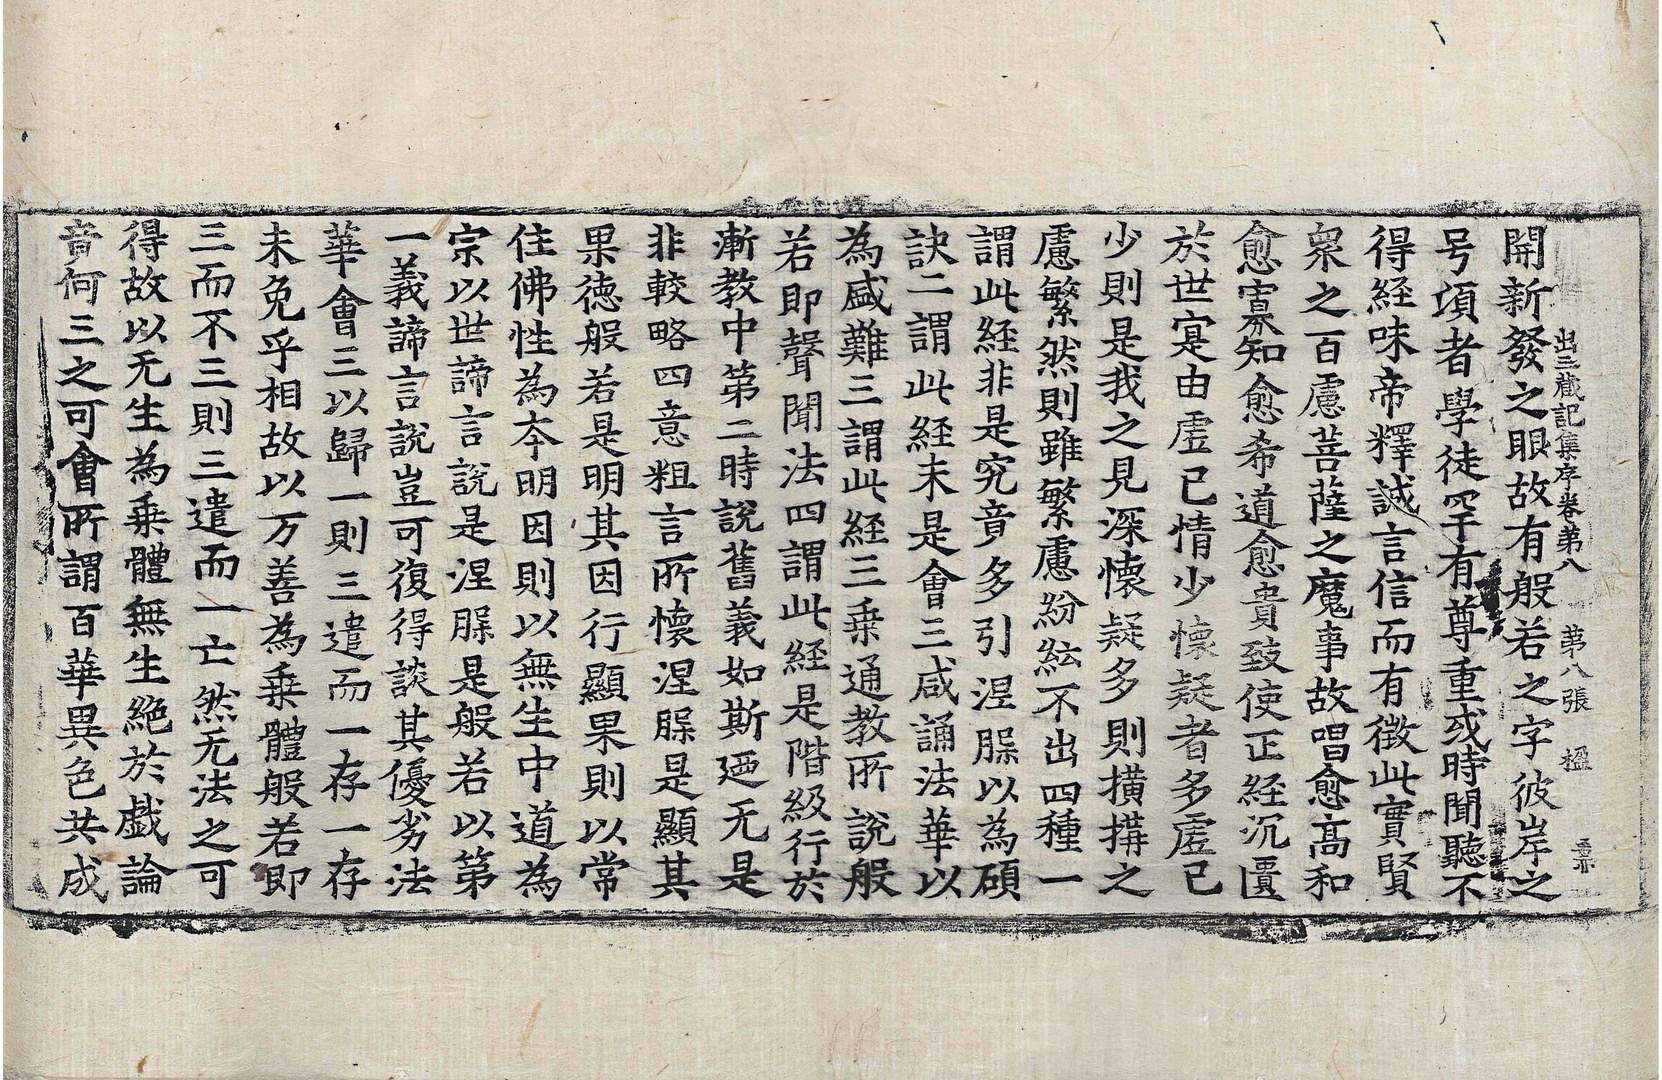 出三藏記集序卷第八 第八張 楹
開新發之眼故有般若之字彼岸之
号頃者學徒罕有尊重或時聞聽不
得經味帝釋誠言信而有徵此實賢
衆之百慮菩薩之魔事故唱愈高和
愈寡知愈希道愈貴致使正經沉匱
於世寔由虛已情少懷疑者多虛已
少則是我之見深懷疑多則橫搆之
慮繁然則雖繁慮紛紜不出四種一
謂此経非是究竟多引涅槃以為碩
訣二謂此経未是會三咸誦法華以
為盛難三謂此経三乗通教所說般
若即聲聞法四謂此経是階級行於
漸教中第二時說舊義如斯廼无是
非較略四意粗言所懷涅槃是顯其
果德般若是明其因行顯果則以常
住佛性為夲明因則以無生中道為
宗以世諦言說是涅槃是般若以第
一義諦言說豈可復得談其優劣法
華會三以歸一則三遣而一存一存
未免乎相故以万善為乗體般若即
三而不三則三遣而一亡然无法之可
得故以无生為乗體無生絶於戲論
竟何三之可會所謂百華異色共成